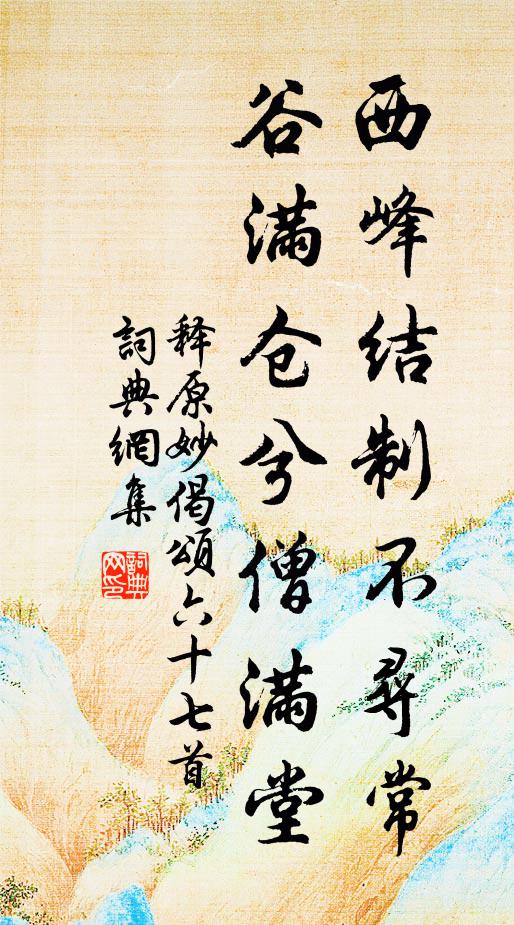 西峰结制不寻常
谷满仓兮僧满堂
释原妙偈颂六十七首
詞典網集
詞典
网印